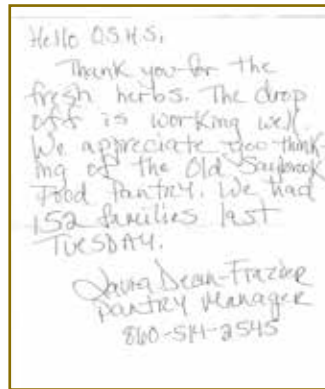 Hello O.S.H.S.,
Thank you for the
fresh herbs. The drop
off is working well.
We appreciate you think-
ing of the Old Saybrook
Food Pantry. We had
152 families last
TUESDAY.
Laura Dean-Frazier
Pantry Manager
860-514-2545